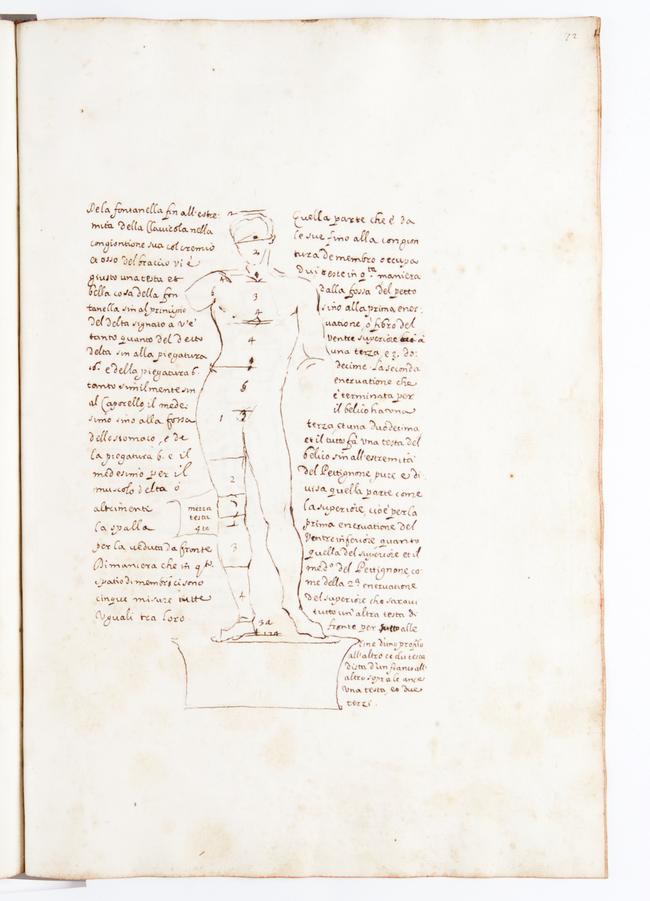 72
Dela fontanella fin all'estre:
mità della Clavicola nella
congiontione sua col cremio
osso del braccio vi è
giusto una testa et
della cosa della fon
tanella sin al principio
del delta signato a v'è
tanto quanto del
delta sin alla piegatura
b. e della piegatura b.
tanto similmente sin
al Caporello, il mede:
simo sino alla fossa
dello stomaco, e da
la piegatura b. e il
medesimo per il
muscolo delta ó
altrimente
la spalla
per la veduta da fronte
Di maniera che in
spatio di membri ci sono
cinque misure tutte
Uguali tra loro
Quella parte che è da
le sue sino alla congion
tura de membro occupa
dui teste in q.ta maniera
dalla fossa del petto
sino alla prima ener:
uatione, ó fibro del
Ventre superiore
una terza e 2. do:
decime. La seconda
eneruatione che
è terminata per
il belico ha una
terza et una Duodecima
et il tutto fa una testa del
belico sin all'estremità
Del Pettignone pure è di:
uisa quella parte come
la superiore, cioè per la
prima eneruatione del
Ventre inferiore quanto
quella del superiore et il
med.o del Pettignone, co:
me della 2.a eneruatione
Del superiore che sarà
tutto un'altra testa di
fronte per alle
fine d'uno profilo
all'altro ce du teste
dista d'un fianco all'
altro sopra le anse
una testa, et due
terzi.
2
4
3
4
4
6
1
3
2
mezza
testa
3
4
34